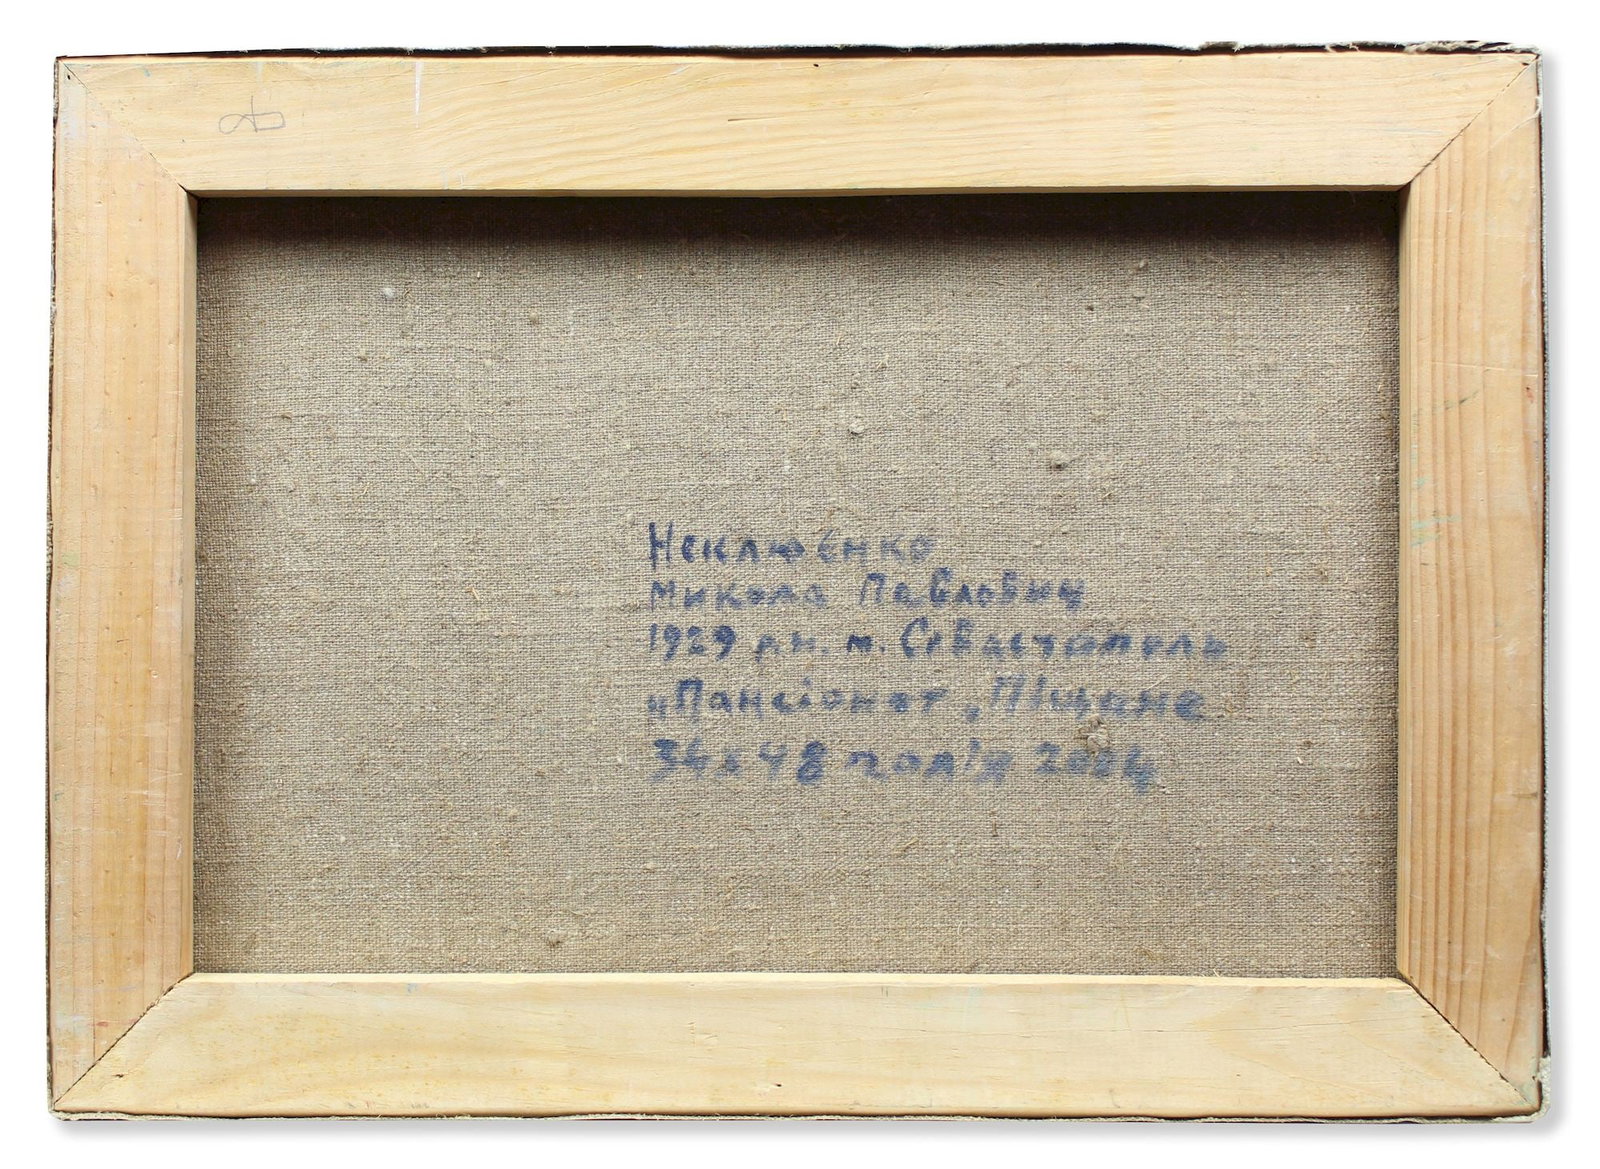 Неклюенко
Микола Павлович
1929 р.н. м. Севастополь
„Пансіонат „Піщане
34х48 пол'я 2004